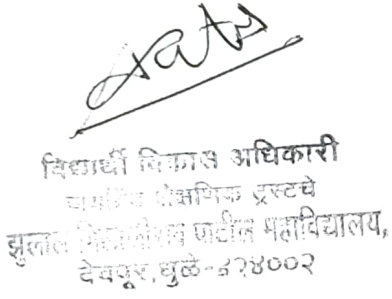 विद्यार्थी विकास अधिकारी
शैक्षणिक ट्रस्टचे
झुलाल भिलाजीराव पाटील महाविद्यालय,
देवपूर, धुळे-४२४००२